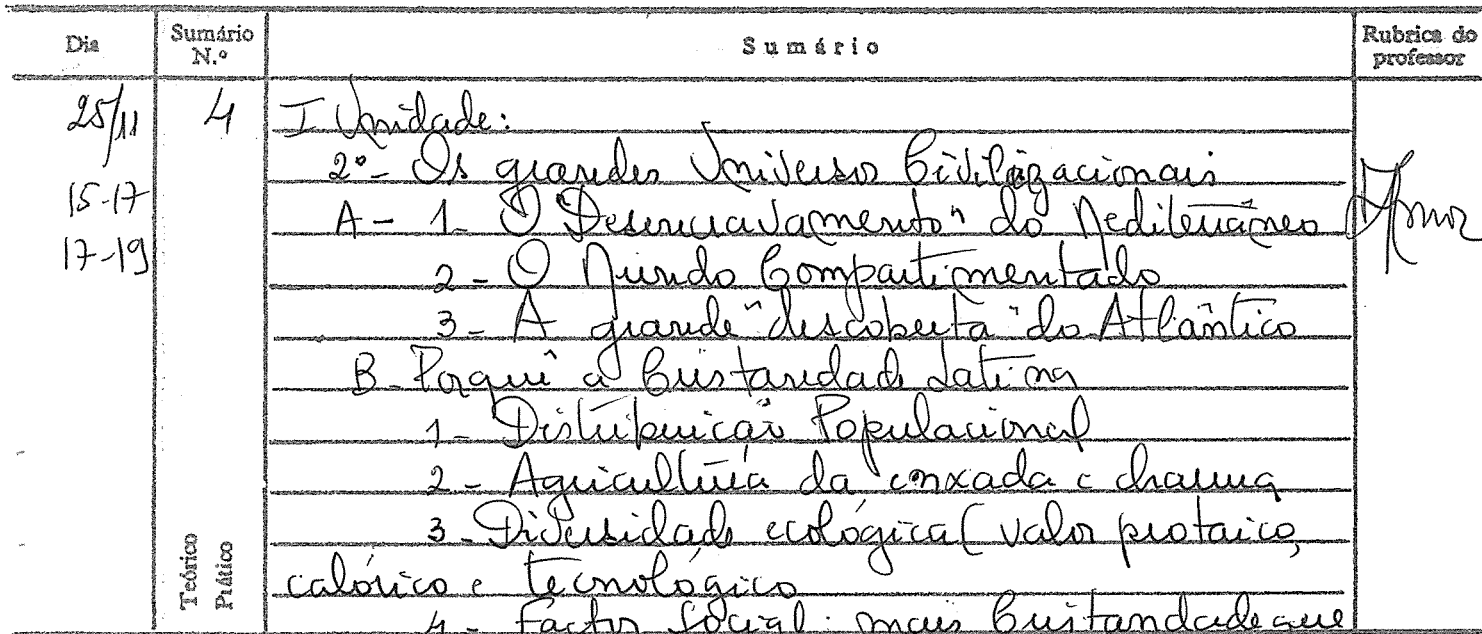 Dia Sumário N.º Sumário Rubrica do professor
25/11 4 I Unidade:
2º- Os grandes Universo Civilizacionais
15-17
A - 1- O "Desencravamento" do Mediterrâneo
17-19
2 - O Mundo Compartimentado
3 - A grande "descoberta" do Atlântico
B - Porquê a Cristandade Latina
1 - Distribuição Populacional
2 - Agricultura da enxada e charrua
3 - Diversidade ecológica ( valor protaico,
calórico e tecnológico
4 - Factor Social: mais Cristandade que
Teórico
Prático